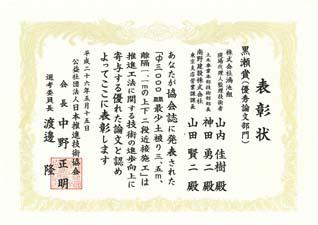 表彰状
黒瀬賞(優秀論文部門)
株式会社鴻池組
現場代理人監理技術者
山内佳樹殿
土木事業本部技術部部長
神田勇二殿
南野建設株式会社
東京支店営業課課長
山田賢二殿
あなたが協会誌に発表された
「φ3000㎜、最少土被り3.5m、
離隔1.1mの上下二段近接施工」は
推進工法に関する技術の進歩向上に
寄与する優れた論文と認め
よってここに表彰します
平成二十六年五月十五日
公益社団法人日本推進技術協会
会長 中野正明
選考委員長 渡邊隆